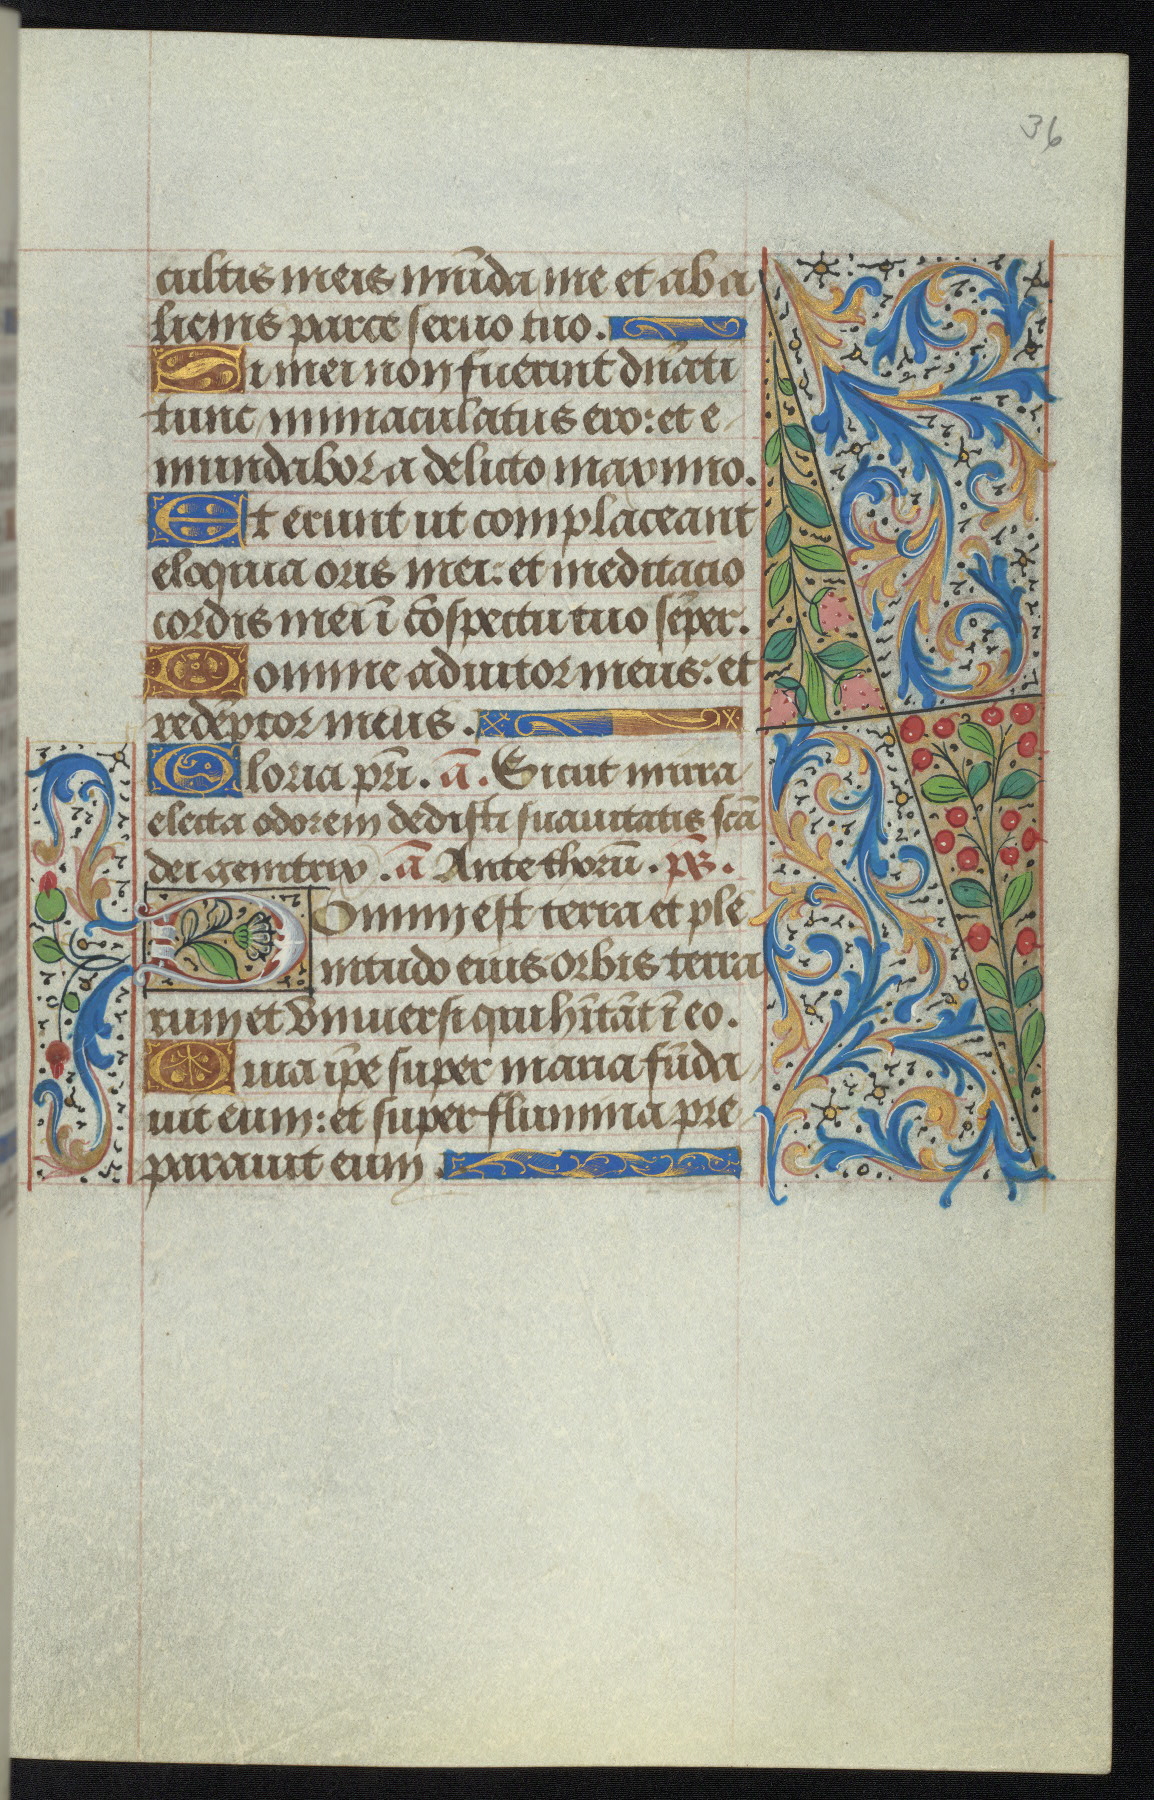 36
cultis meis mūda me et ab a
lienis parce seruo tuo.
Si mei non fuerint dn̄ati
tunc immaculatus ero: et e
mundabor a delicto maximo.
Et erunt ut complaceant
eloquia oris mei: et meditacio
cordis mei ī cōspectu tuo sēper.
Domine adiutor meus: et
redēptor meus.
Gloria pr̄i. ā. Sicut mirra
electa odorem dedisti suauitatis scā
dei genitrix. ā Ante thorū. ps̄.
Domini est terra et ple
nitudo eius orbis terra
rum et vniuersi qui hītāt ī eo.
Quia ip̄e super maria fūda
uit eum: et super flumina pre
parauit eum.